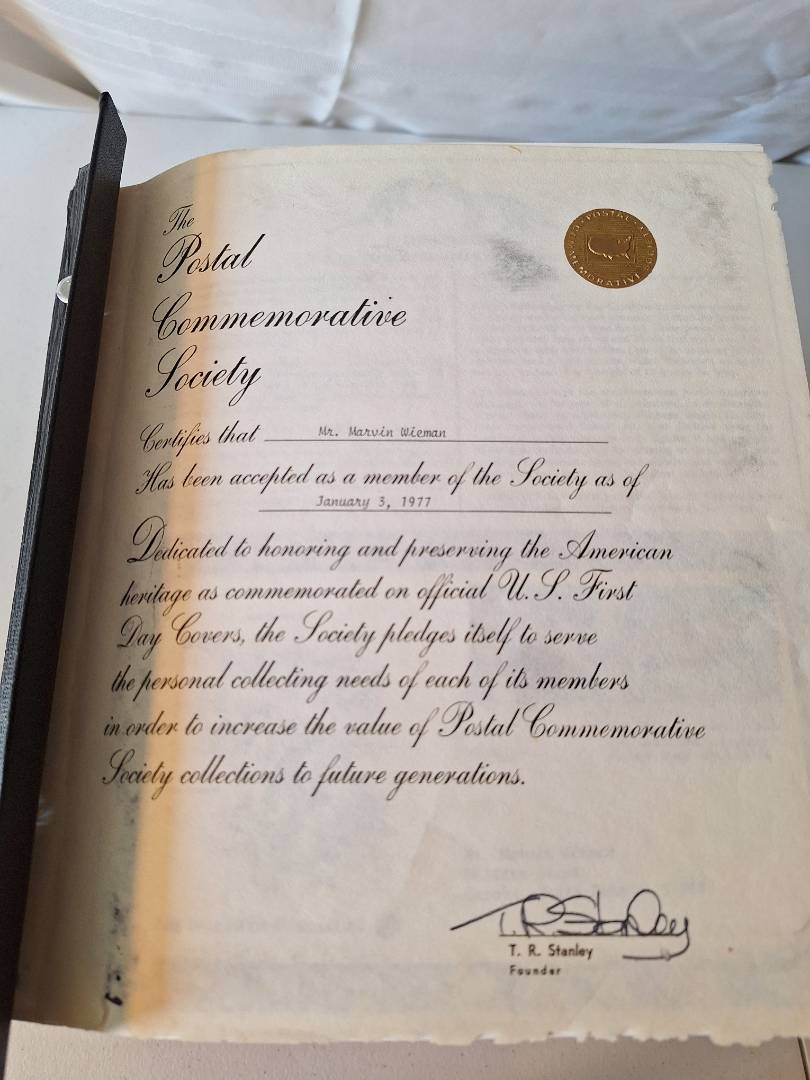 The
Postal
Commemorative
Society
Certifies that Mr. Marvin Wieman
Has been accepted as a member of the Society as of
January 3, 1977
Dedicated to honoring and preserving the American
heritage as commemorated on official U.S. First
Day Covers, the Society pledges itself to serve
the personal collecting needs of each of its members
in order to increase the value of Postal Commemorative
Society collections to future generations.
T. R. Stanley
T. R. Stanley
Founder